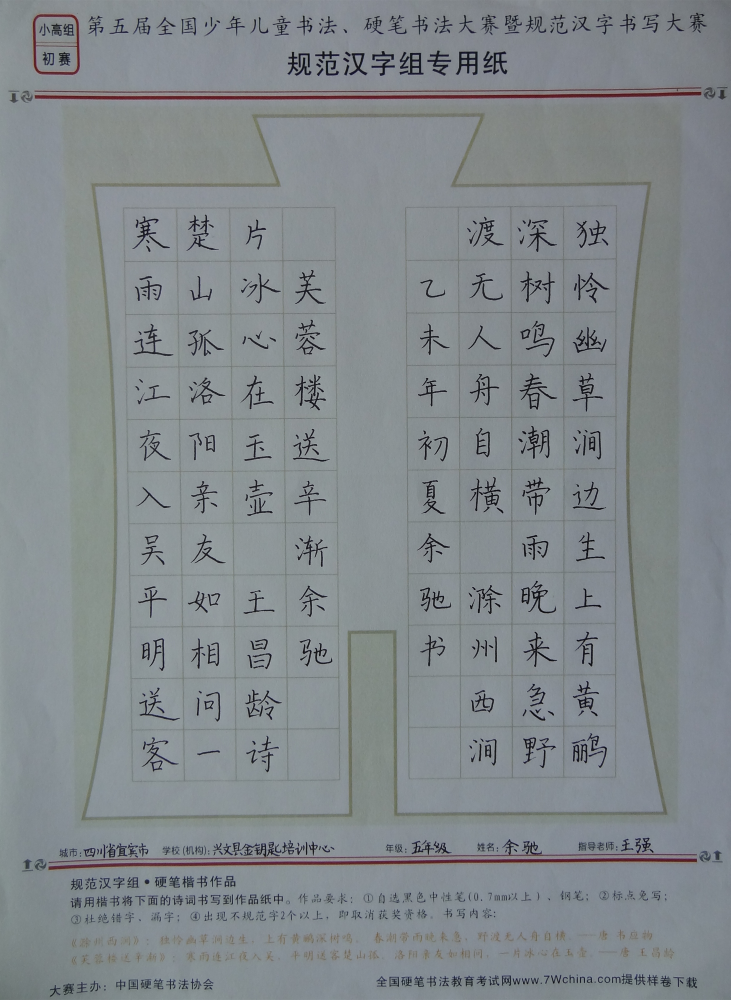 小高组
初赛
第五届全国少年儿童书法、硬笔书法大赛暨规范汉字书写大赛
规范汉字组专用纸
独怜幽草涧边生上有黄鹂
深树鸣春潮带雨晚来急野
渡无人舟自横 滁州西涧
乙未年初夏余驰书
芙蓉楼送辛渐余驰
片冰心在玉壶 王昌龄诗
楚山孤洛阳亲友如相问一
寒雨连江夜入吴平明送客
城市：四川省宜宾市 学校(机构)：兴文县金钥匙培训中心 年级：五年级 姓名：余驰 指导老师：王强
规范汉字组·硬笔楷书作品
请用楷书将下面的诗词书写到作品纸中。作品要求：①自选黑色中性笔(0.7mm以上)、钢笔；②标点免写；
③杜绝错字、漏字；④出现不规范字2个以上，即取消获奖资格。书写内容：
《滁州西涧》：独怜幽草涧边生，上有黄鹂深树鸣。春潮带雨晚来急，野渡无人舟自横。——唐 韦应物
《芙蓉楼送辛渐》：寒雨连江夜入吴，平明送客楚山孤。洛阳亲友如相问，一片冰心在玉壶。——唐 王昌龄
大赛主办：中国硬笔书法协会
全国硬笔书法教育考试网www.7Wchina.com提供样卷下载